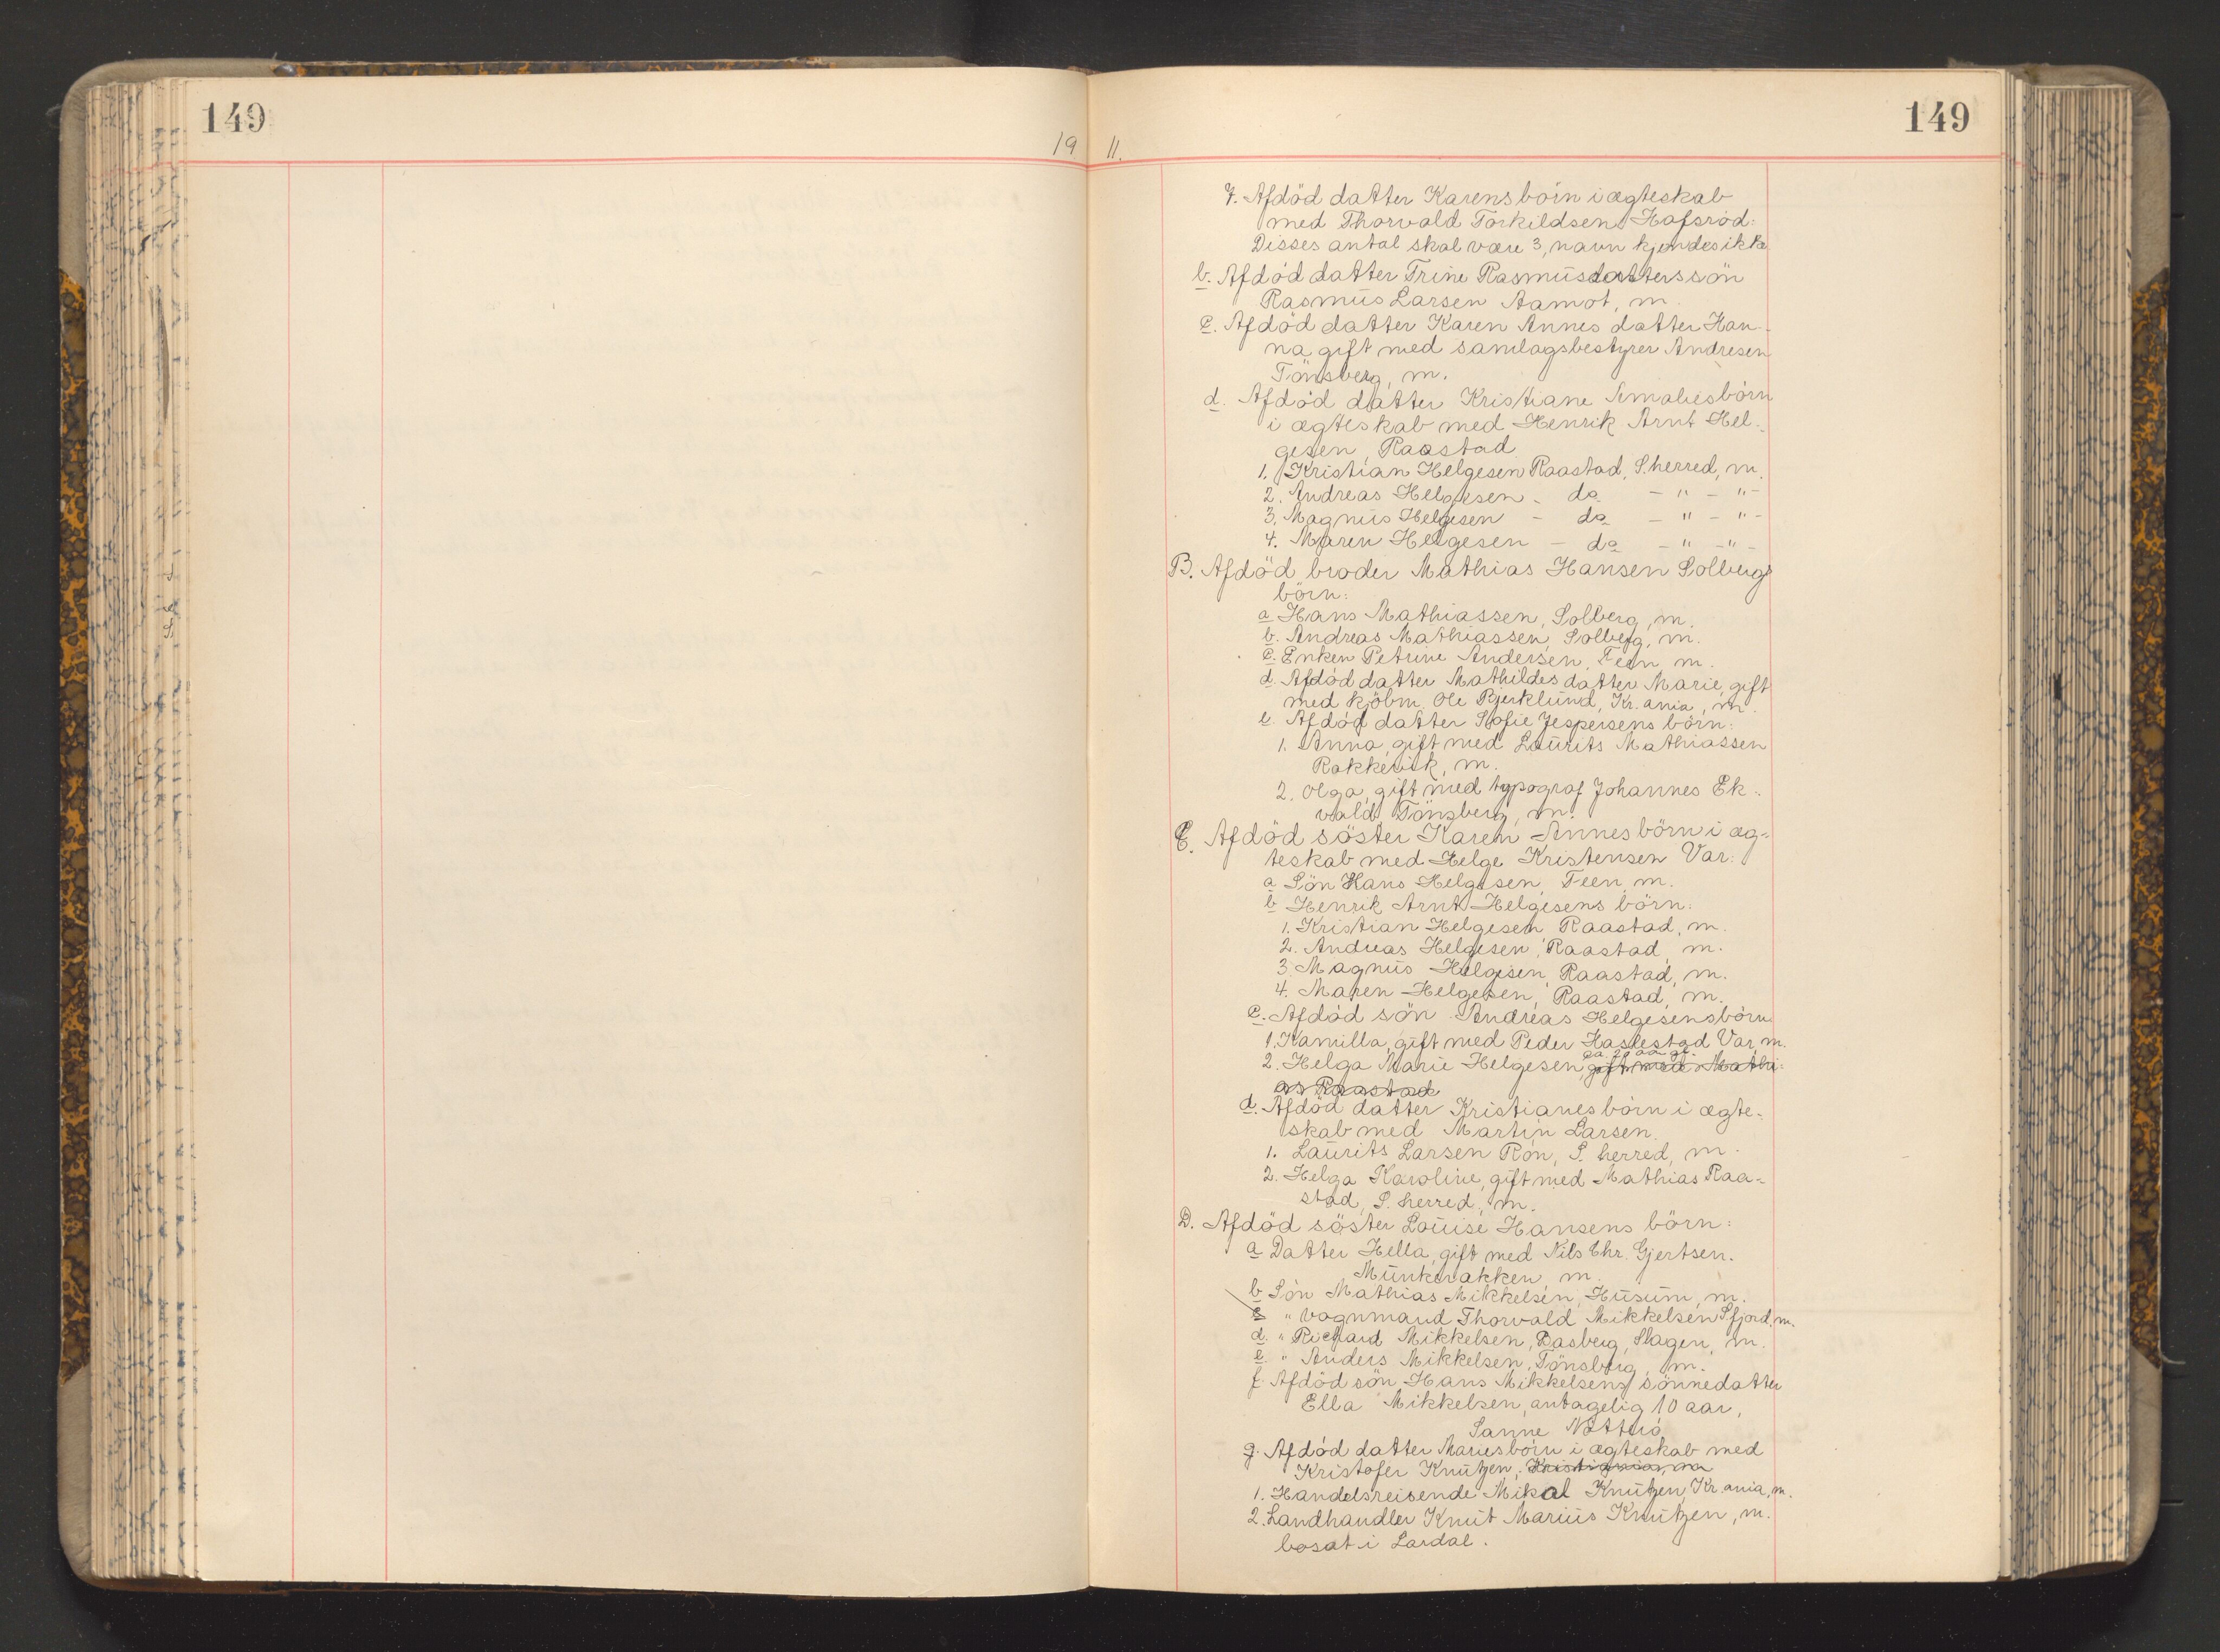 149
149
19 11.
7. Afdöd datter Karens börn i ægteskab
med Thorvald Torkildsen Hafsröd:
Disses antal skal være 3, navn kjendes ikke
b. Afdöd datter Trine Rasmusdatters sön
Rasmus Larsen Aamot, m.
c. Afdöd datter Karen Annes datter Han-
na gift med samlagsbestyrer Andresen
Tönsberg, m.
d. Afdöd datter Kristiane Amalies börn
i ægteskab med Henrik Arnt Hel-
gesen, Raastad
1. Kristian Helgesen Raastad, S.herred, m.
2. Andreas Helgesen - do - " - " -
3. Magnus Helgesen - do - " - " -
4. Maren Helgesen - do - " - " -
B. Afdöd broder Mathias Hansen Solbergs
börn:
a Hans Mathiassen, Solberg, m.
b. Andreas Mathiassen, Solberg, m.
c. Enken Petrine Andersen, Feen m.
d. Afdöd datter Mathildes datter Marie, gift
med kjöbm. Ole Bjerklund, Kr.ania, m.
e. Afdöd datter Sofie Jespersens börn:
1. Anna, gift med Laurits Mathiassen
Rakkevik, m.
2. Olga, gift med typograf Johannes Ek-
vald Tönsberg, m.
C. Afdöd söster Karen Annes börn i æg-
teskab med Helge Kristensen Var:
a Sön Hans Helgesen, Feen, m.
b Henrik Arnt Helgesens börn:
1. Kristian Helgesen Raastad, m.
2. Andreas Helgesen, Raastad, m.
3. Magnus Helgesen, Raastad, m.
4. Maren Helgesen, Raastad, m.
c. Afdöd sön Andreas Helgesens börn
1. Kamilla, gift med Peder Haslestad Var, m.
2. Helga Marie Helgesen, gift med Mathi-
as Raastad
d. Afdöd datter Kristianes börn i ægte-
skab med Martin Larsen.
1. Laurits Larsen Rön, S. herred, m.
2. Helga Karoline, gift med Mathias Raa-
stad, S. herred, m.
D. Afdöd söster Louise Hansens börn:
a Datter Hella, gift med Nils Chr. Gjertsen.
Munkerakken, m.
b Sön Mathias Mikkelsen, Husum, m.
c " Vognmand Thorvald Mikkelsen S.fjord, m.
d. " Richard Mikkelsen, Basberg, Slagen, m.
e " Anders Mikkelsen, Tönsberg, m.
f. Afdöd sön Hans Mikkelsens sönnedatter
Ella Mikkelsen, antagelig 10 aar,
Sanne Nötterö
g. Afdöd datter Maries börn i ægteskab med
Kristofer Knutzen, Kristiania, m
1. Handelsreisende Mikal Knutzen, Kr.ania, m.
2. Landhandler Knut Marius Knutzen, m.
bosat i Lardal.